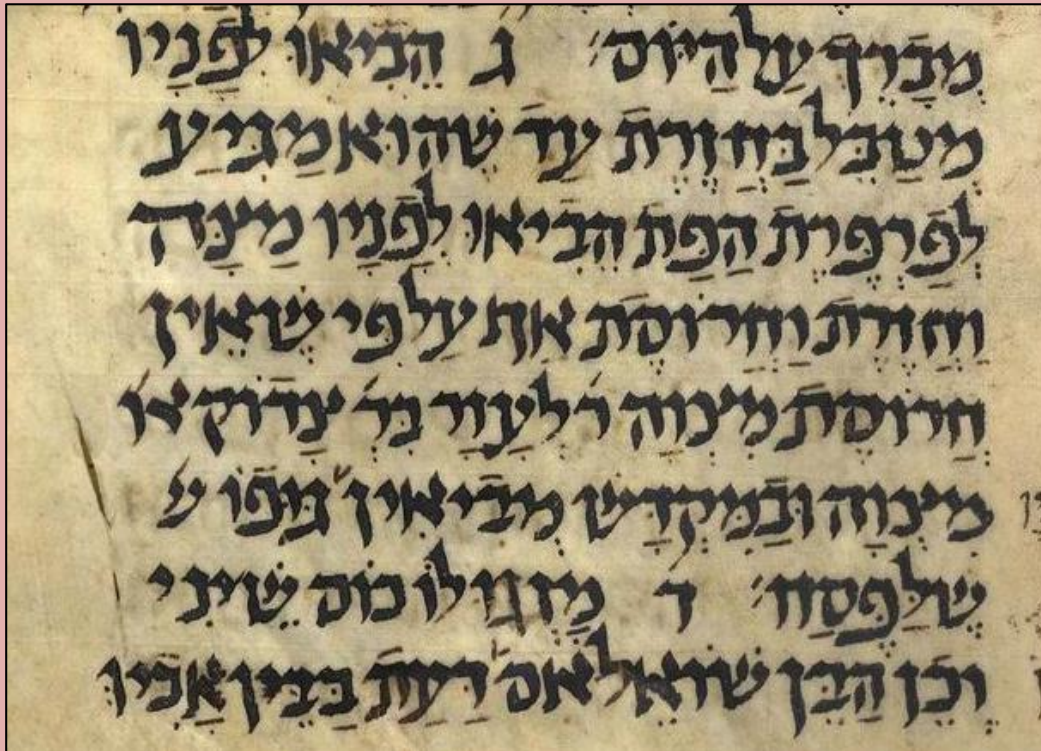 מְבָרֵךְ עַל הַיּוֹם׳ ג הֵבִיאוּ לְפָנָיו
מְטַבֵּל בַּחֲזֶרֶת עַד שֶׁהוּא מַגִּיעַ
לְפַרְפֶּרֶת הַפַּת הֵבִיאוּ לְפָנָיו מַצָּה
וַחֲזֶרֶת וַחֲרוֹסֶת אַף עַל פִּי שֶׁאֵין
חֲרוֹסֶת מִצְוָה ר׳ לְעָזָר בֵּר׳ צָדוֹק או׳
מִצְוָה וּבַמִּקְדָּשׁ מְבִיאִין גּוּפוֹ ש
שֶׁלַּפֶּסַח׳ ד מָזְגוּ לוֹ כוֹס שֵׁינִי
וְכֵן הַבֵּן שׁוֹאֵל אִם דַּעַת בַּבֵּין אָבִיו